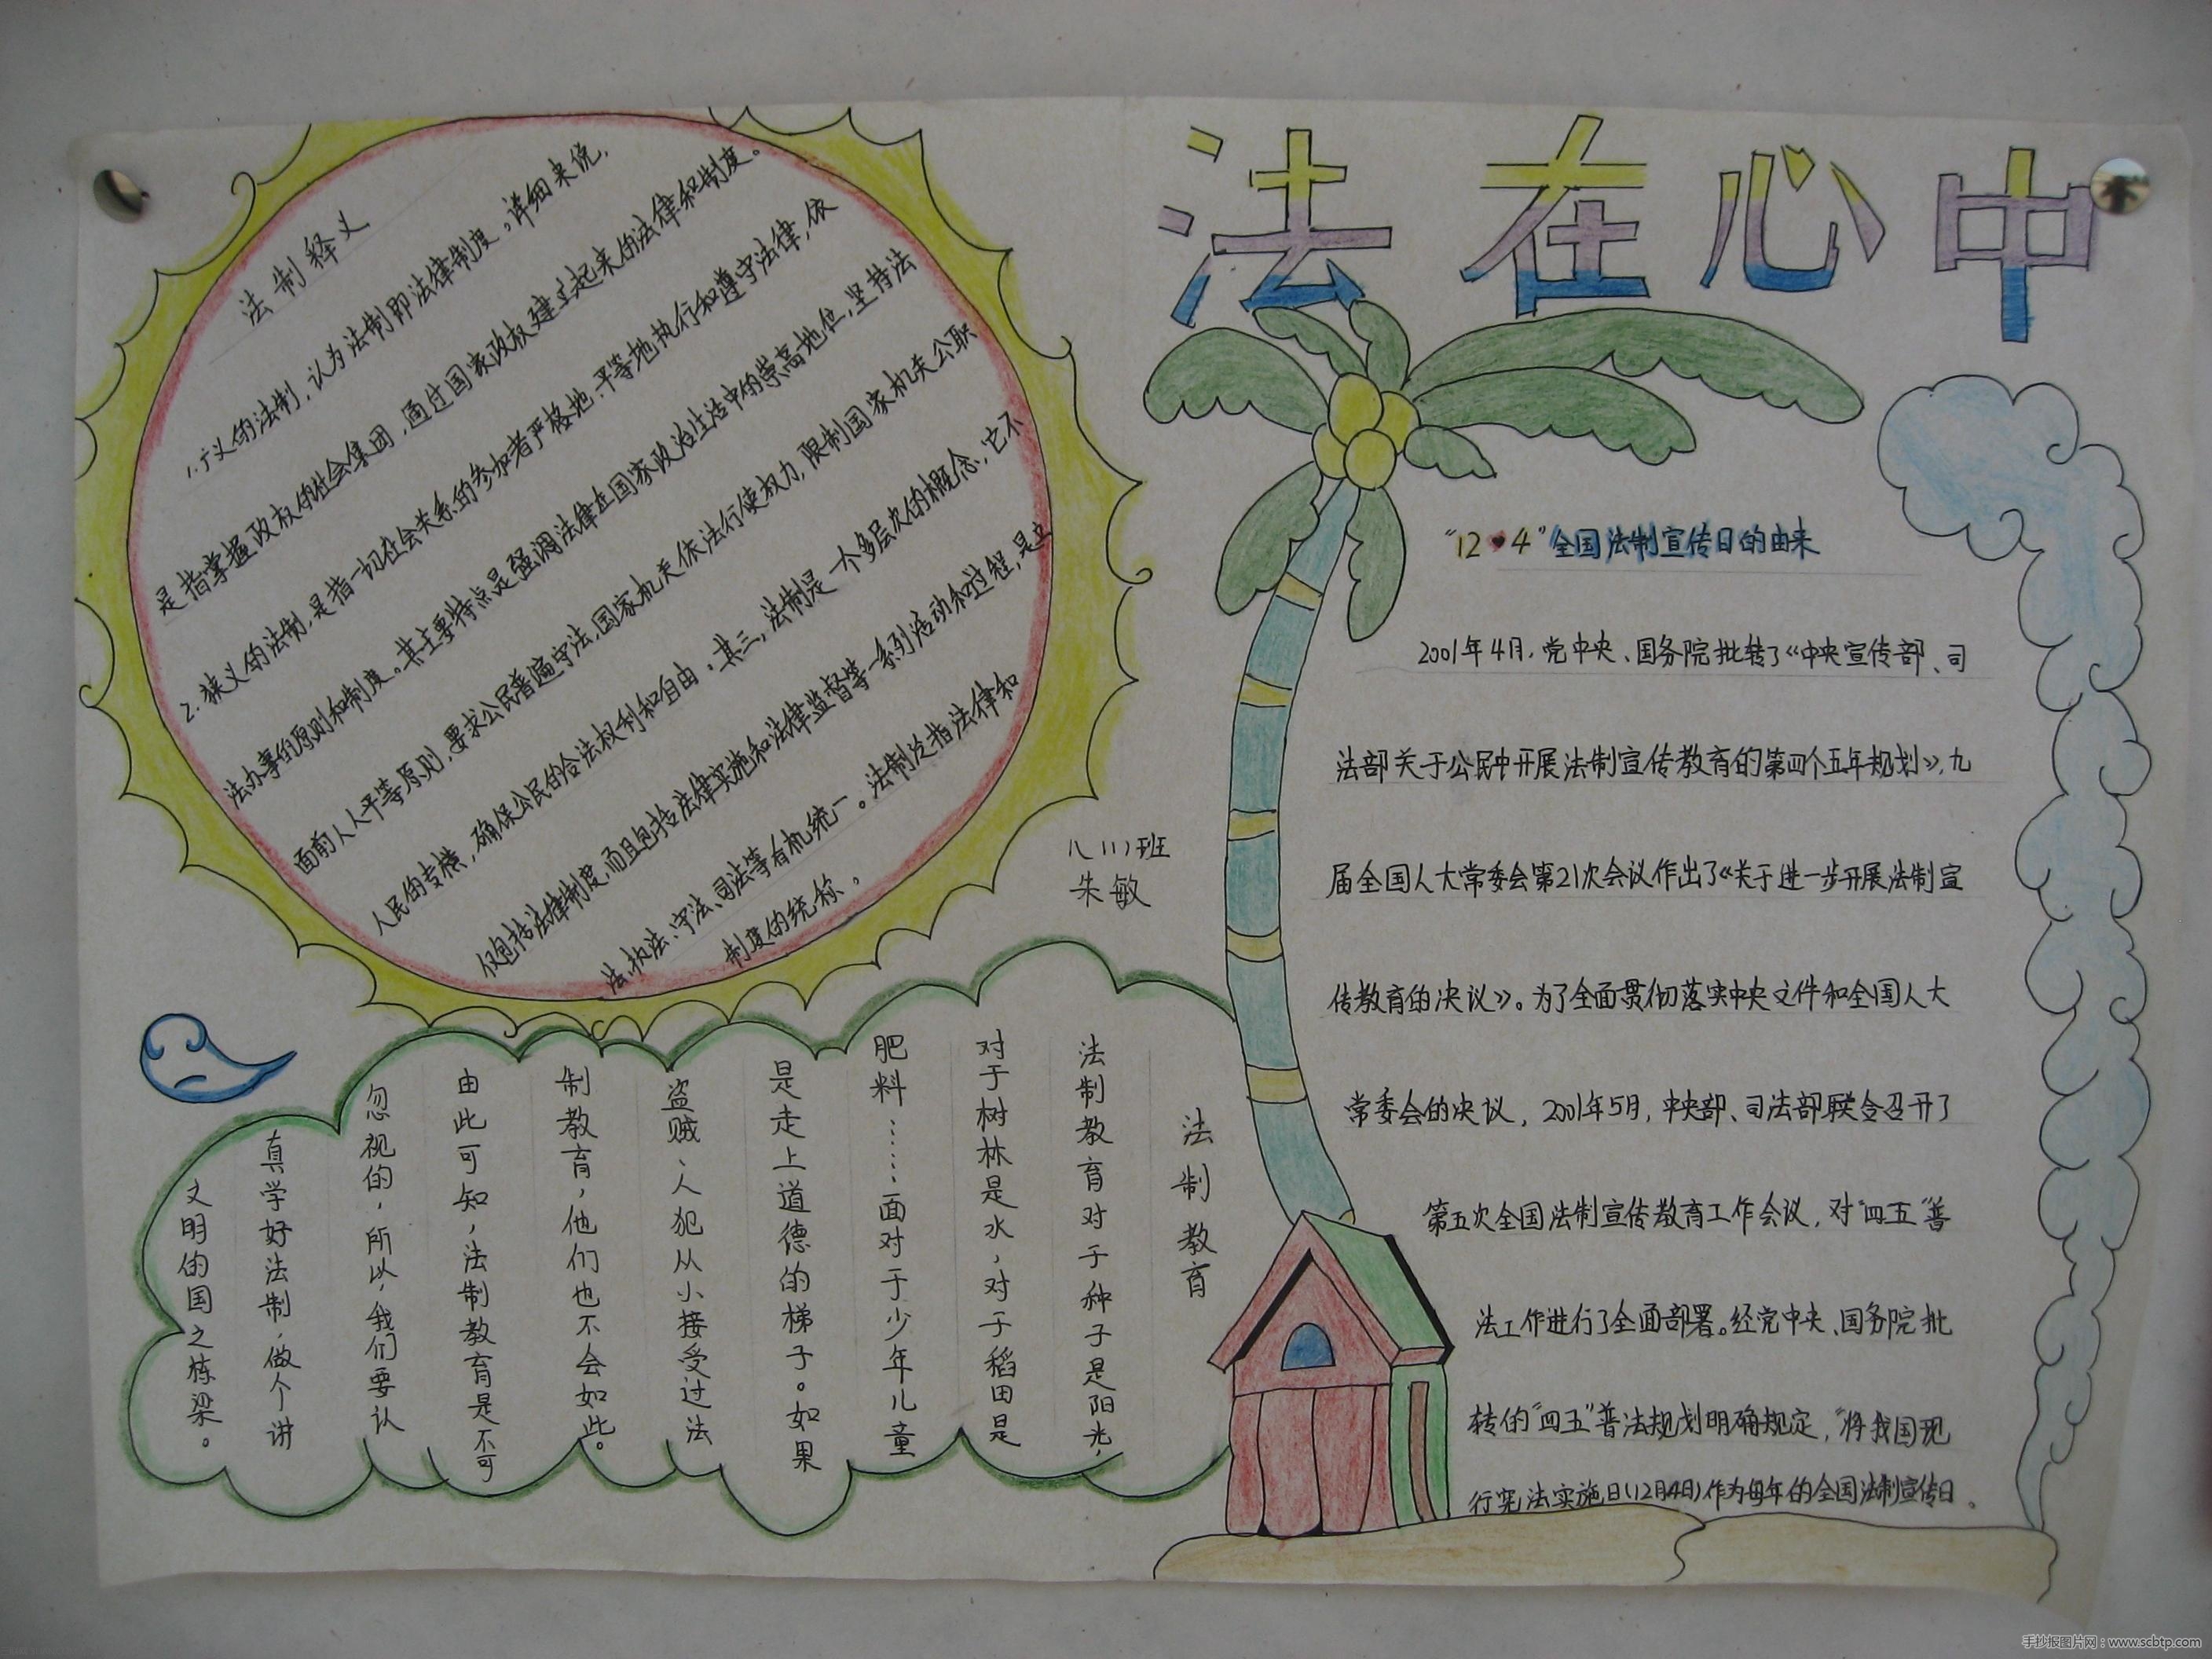 法在心中
法制释义
1.广义的法制,认为法制即法律制度。详细来说,
是指掌握政权的社会集团,通过国家政权建立起来的法律和制度。
2.狭义的法制,是指一切社会关系的参加者严格地、平等地执行和遵守法律,依
法办事的原则和制度。其主要特点是强调法律在国家政治生活中的崇高地位,坚持法
面前人人平等原则,要求公民普遍守法,国家机关依法行使权力,限制国家机关公职
人民的专横,确保公民的合法权利和自由,其三,法制是一个多层次的概念,它不
仅包括法律制度,而且包括法律实施和法律监督等一系列活动和过程,是立
法、执法、守法、司法等有机统一。法制总指法律和
制度的统称。
八(1)班
朱敏
“12♥4”全国法制宣传日的由来
2001年4月,党中央、国务院批转了《中央宣传部、司
法部关于公民中开展法制宣传教育的第四个五年规划》,九
届全国人大常委会第21次会议作出了《关于进一步开展法制宣
传教育的决议》。为了全面贯彻落实中央文件和全国人大
常委会的决议,2001年5月,中央部、司法部联合召开了
第五次全国法制宣传教育工作会议,对“四五”普
法工作进行了全面部署。经党中央、国务院批
转的“四五”普法规划明确规定,“将我国现
行宪法实施日(12月4日)作为每年的全国法制宣传日。
法制教育
法制教育对于种子是阳光,
对于树林是水,对于稻田是
肥料……面对于少年儿童
是走上道德的梯子。如果
盗贼、人犯从小接受过法
制教育,他们也不会如此。
由此可知,法制教育是不可
忽视的,所以,我们要认
真学好法制,做个讲
文明的国之栋梁。
手抄报图片网:www.scbtp.com